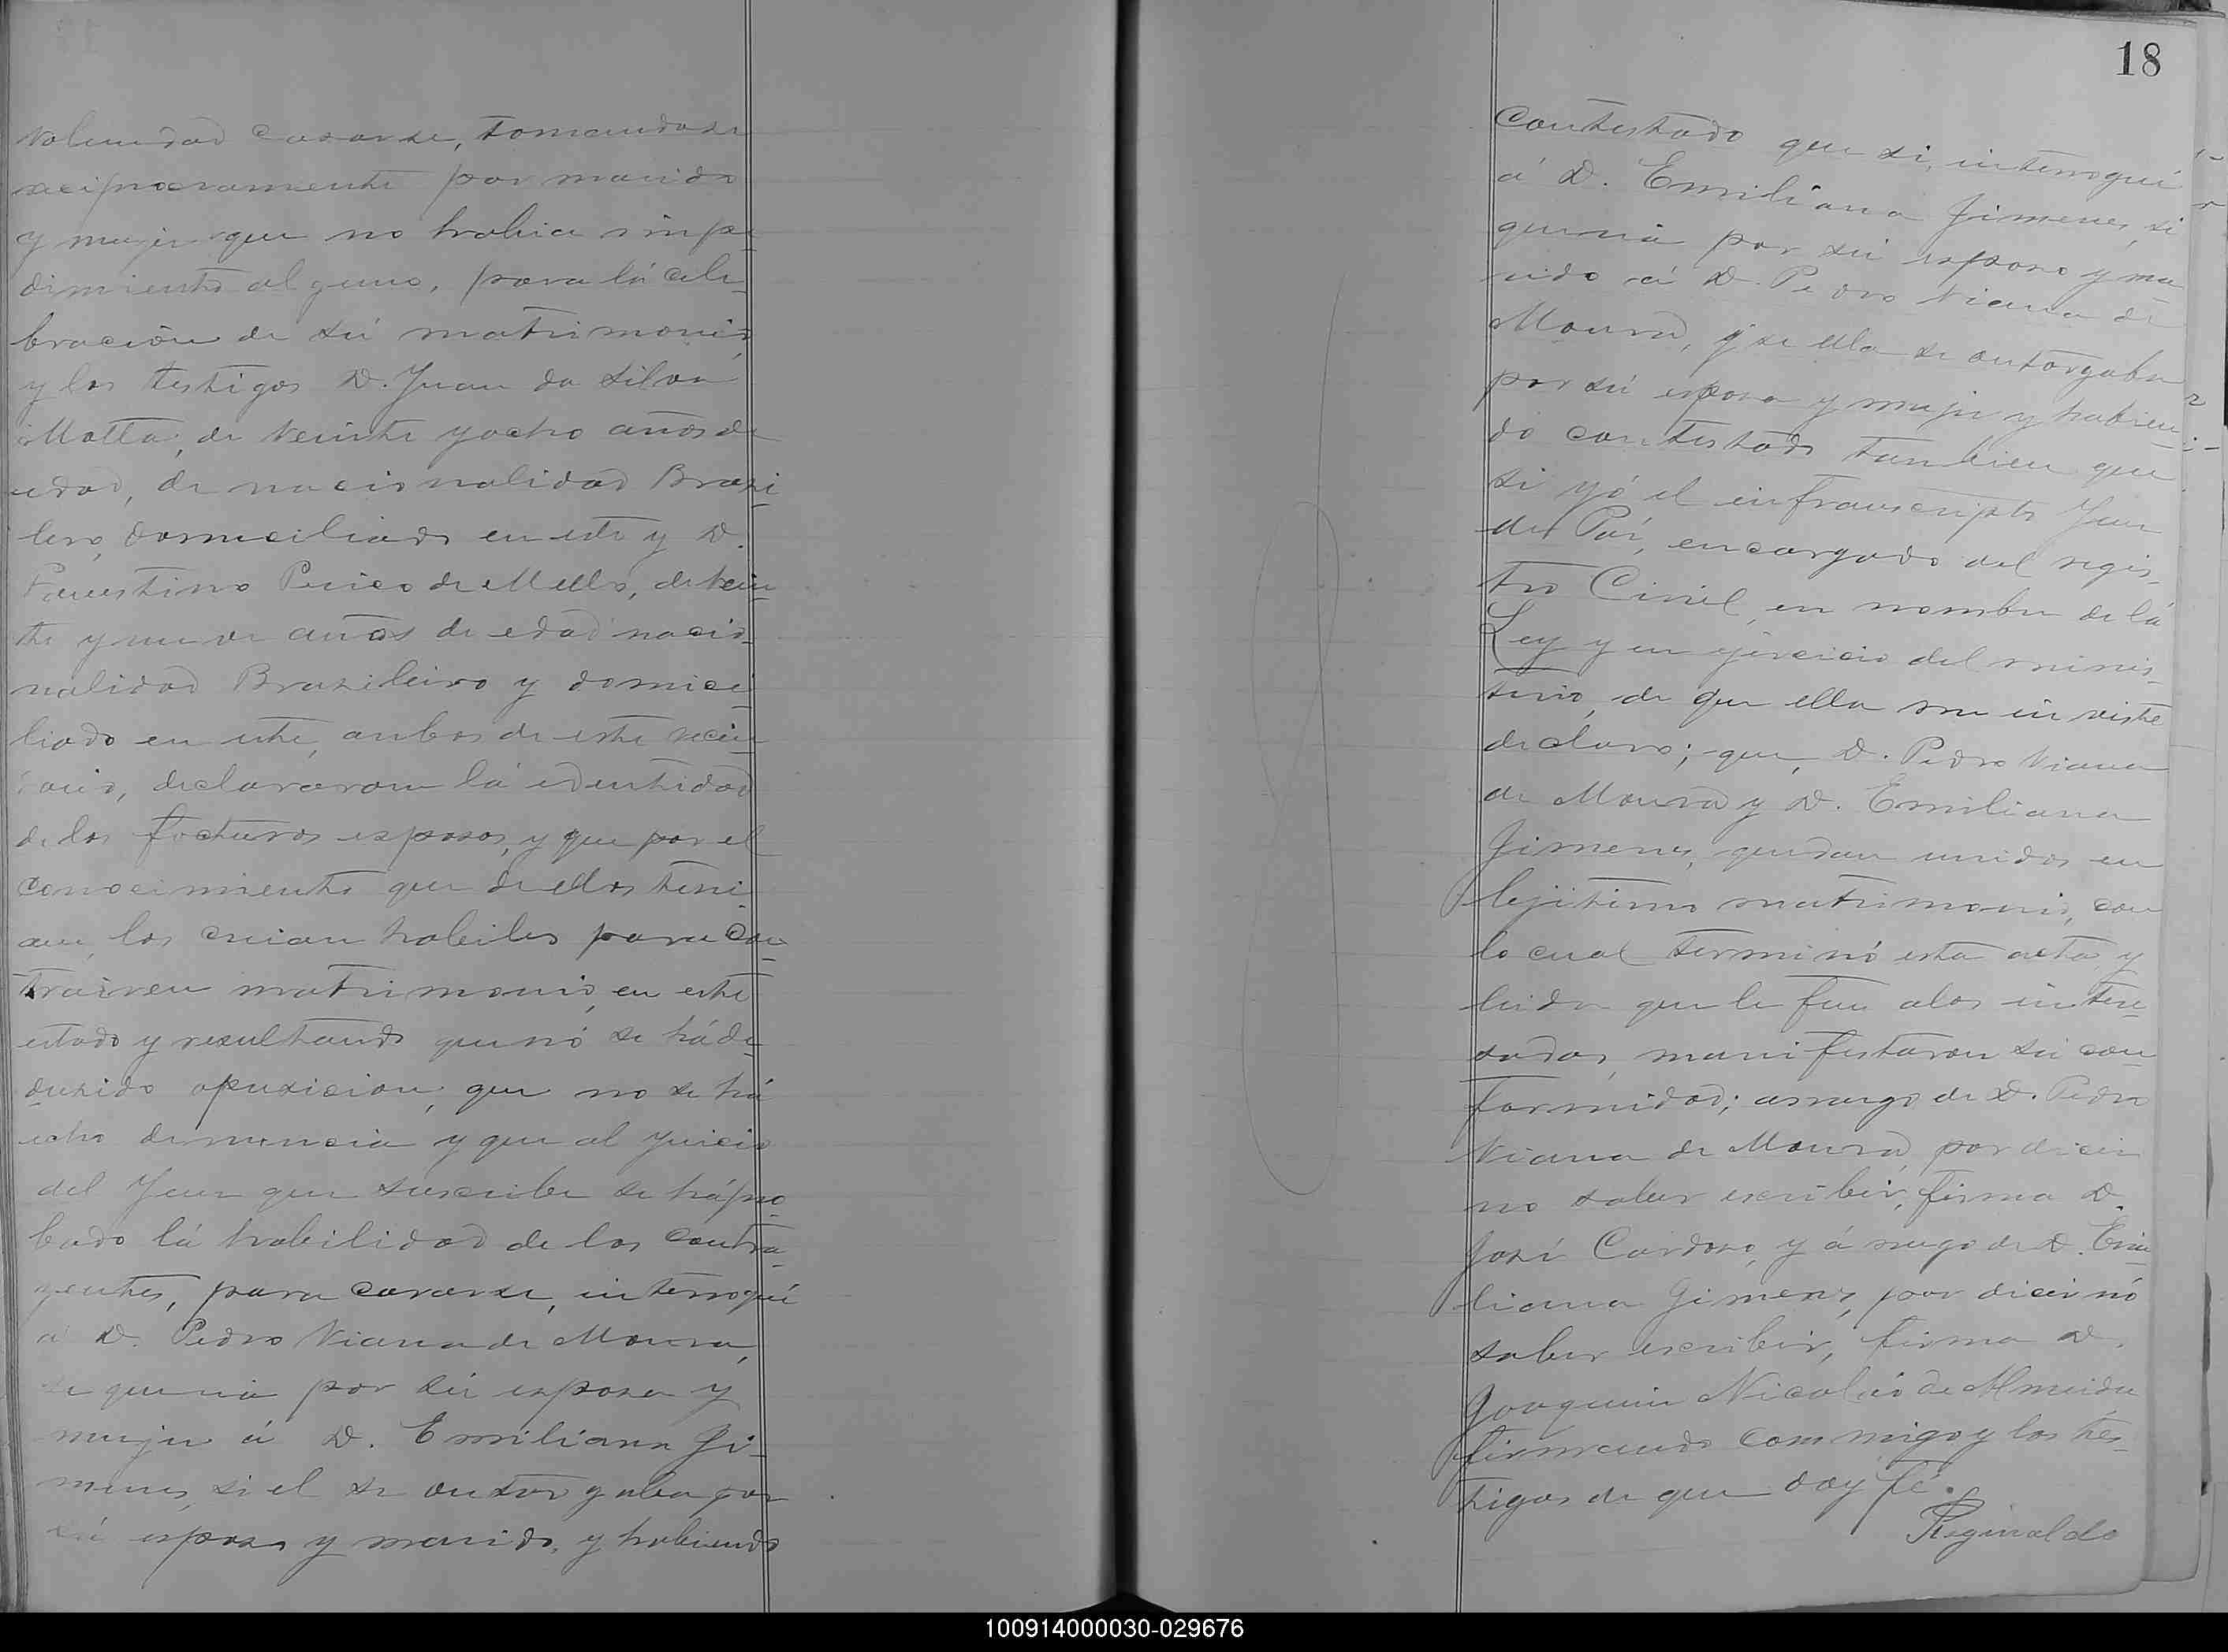 volundad casarse, tomandose
reciprocramente por marido
y mujer que no habia impe-
dimiento alguno, para lá cele-
bración de sú matrimonio,
y los testigos D. Juan da Silva
Motta, de veinte y ocho años de
edad, de nacionalidad Brazi-
lero, domiciliado en esto y D.
Faustino de Mello, de vein-
te y nueve años de edad nacio-
nalidad Brazileiro y domici-
liado en este, anbos de este vecin-
dario, declararom lá edentidad
de los focturos esposos, y que por el
conocimiento que de ellos teni-
an, los creian habiles para con-
trairen matrimonio, en este
estado y resultando que nó se há de-
duzido opusicion, que no se há
echo denuncia y que al juicio
del Juez que suscribe se há pro-
bado lá habilidad de los contra-
yentes, para casarse, interroqué
á D. Pedro Viana de Moura,
se queria por sú esposa y
mujer á D. Emiliana Ji-
menes, si el se outorgaba por
sú esposo y marido, y habiendo
18
Contestado que si, interroqué
á D. Emiliana Jimenes, si
queria por sú esposo y ma-
rido á D. Pedro Viana de
Moura, y se ella se outorgaba
por sú esposa y mujer y habien-
do contestado tambien que
si yó el infranscripto Juez
de Páz, encargado del regis-
tro Civíl, en nombre de lá
Ley y en ejercicio del minis-
terio, de que ella me inviste
declaro; que, D. Pedro Viana
de Moura y D. Emiliana
Jimenes, quedan unidos en
lejitimo matrimonio, con
lo cual terminó esta acta, y
leida que le fue alos intere-
sados, manifestaron sú con-
formidad; arruego de D. Pedro
Viana de Moura, por dicir
no saber escribir, firma D.
José Cardoso, y á ruego de D. Emi-
liana Gimenes, por dicir nó
saber escribir, firma D.
Joaquin Nicoláo de Almeida
firmando commigo y los tes-
tigos de que doy fé.
Reginaldo
100914000030-029676